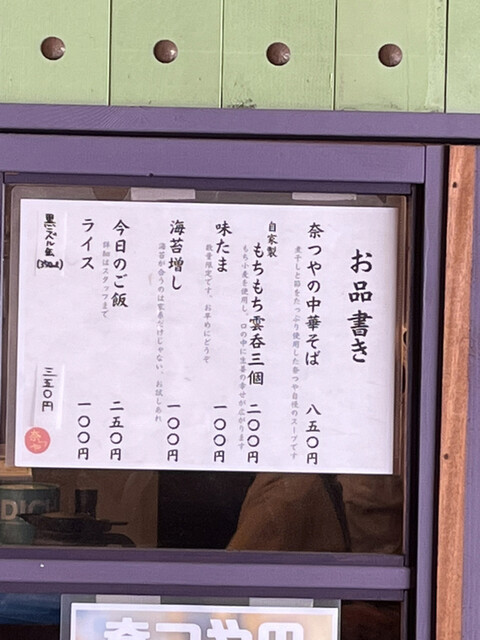 お品書き
奈つやの中華そば 八五〇円
煮干しと節をたっぷり使用した奈つや自慢のスープです
自家製
もちもち雲呑三個 二〇〇円
もち小麦を使用し、口の中に生姜の幸せが広がります
味たま 一〇〇円
数量限定です。お早めにどうぞ
海苔増し 一〇〇円
海苔が合うのは家系だけじゃない、お試しあれ
今日のご飯 二五〇円
詳細はスタッフまで
ライス 一〇〇円
黒ラベル缶 三五〇円
(350ml)
奈つやの